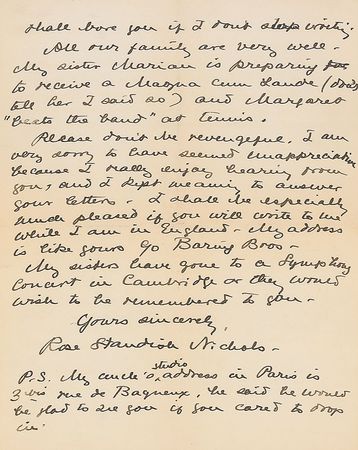 shall bore you if I don't stop writing.
All our family are very well.
My sister Marian is preparing for
to receive a Magna Cum Laude (don't
tell her I said so) and Margaret
"beats the band" at tennis.
Please don't be revengeful. I am
very sorry to have seemed unappreciative
because I really enjoy hearing from
you, and I kept meaning to answer
your letters. I shall be especially
much pleased if you will write to me
while I am in England. My address
is like yours Go Baring Bros.
My sisters have gone to a Symphony
Concert in Cambridge or they would
wish to be remembered to you.
Yours sincerely,
Rose Standish Nichols.
P.S. My uncle's studio address in Paris is
3 bis rue de Bagneux, he said he would
be glad to see you if you cared to drop
in.